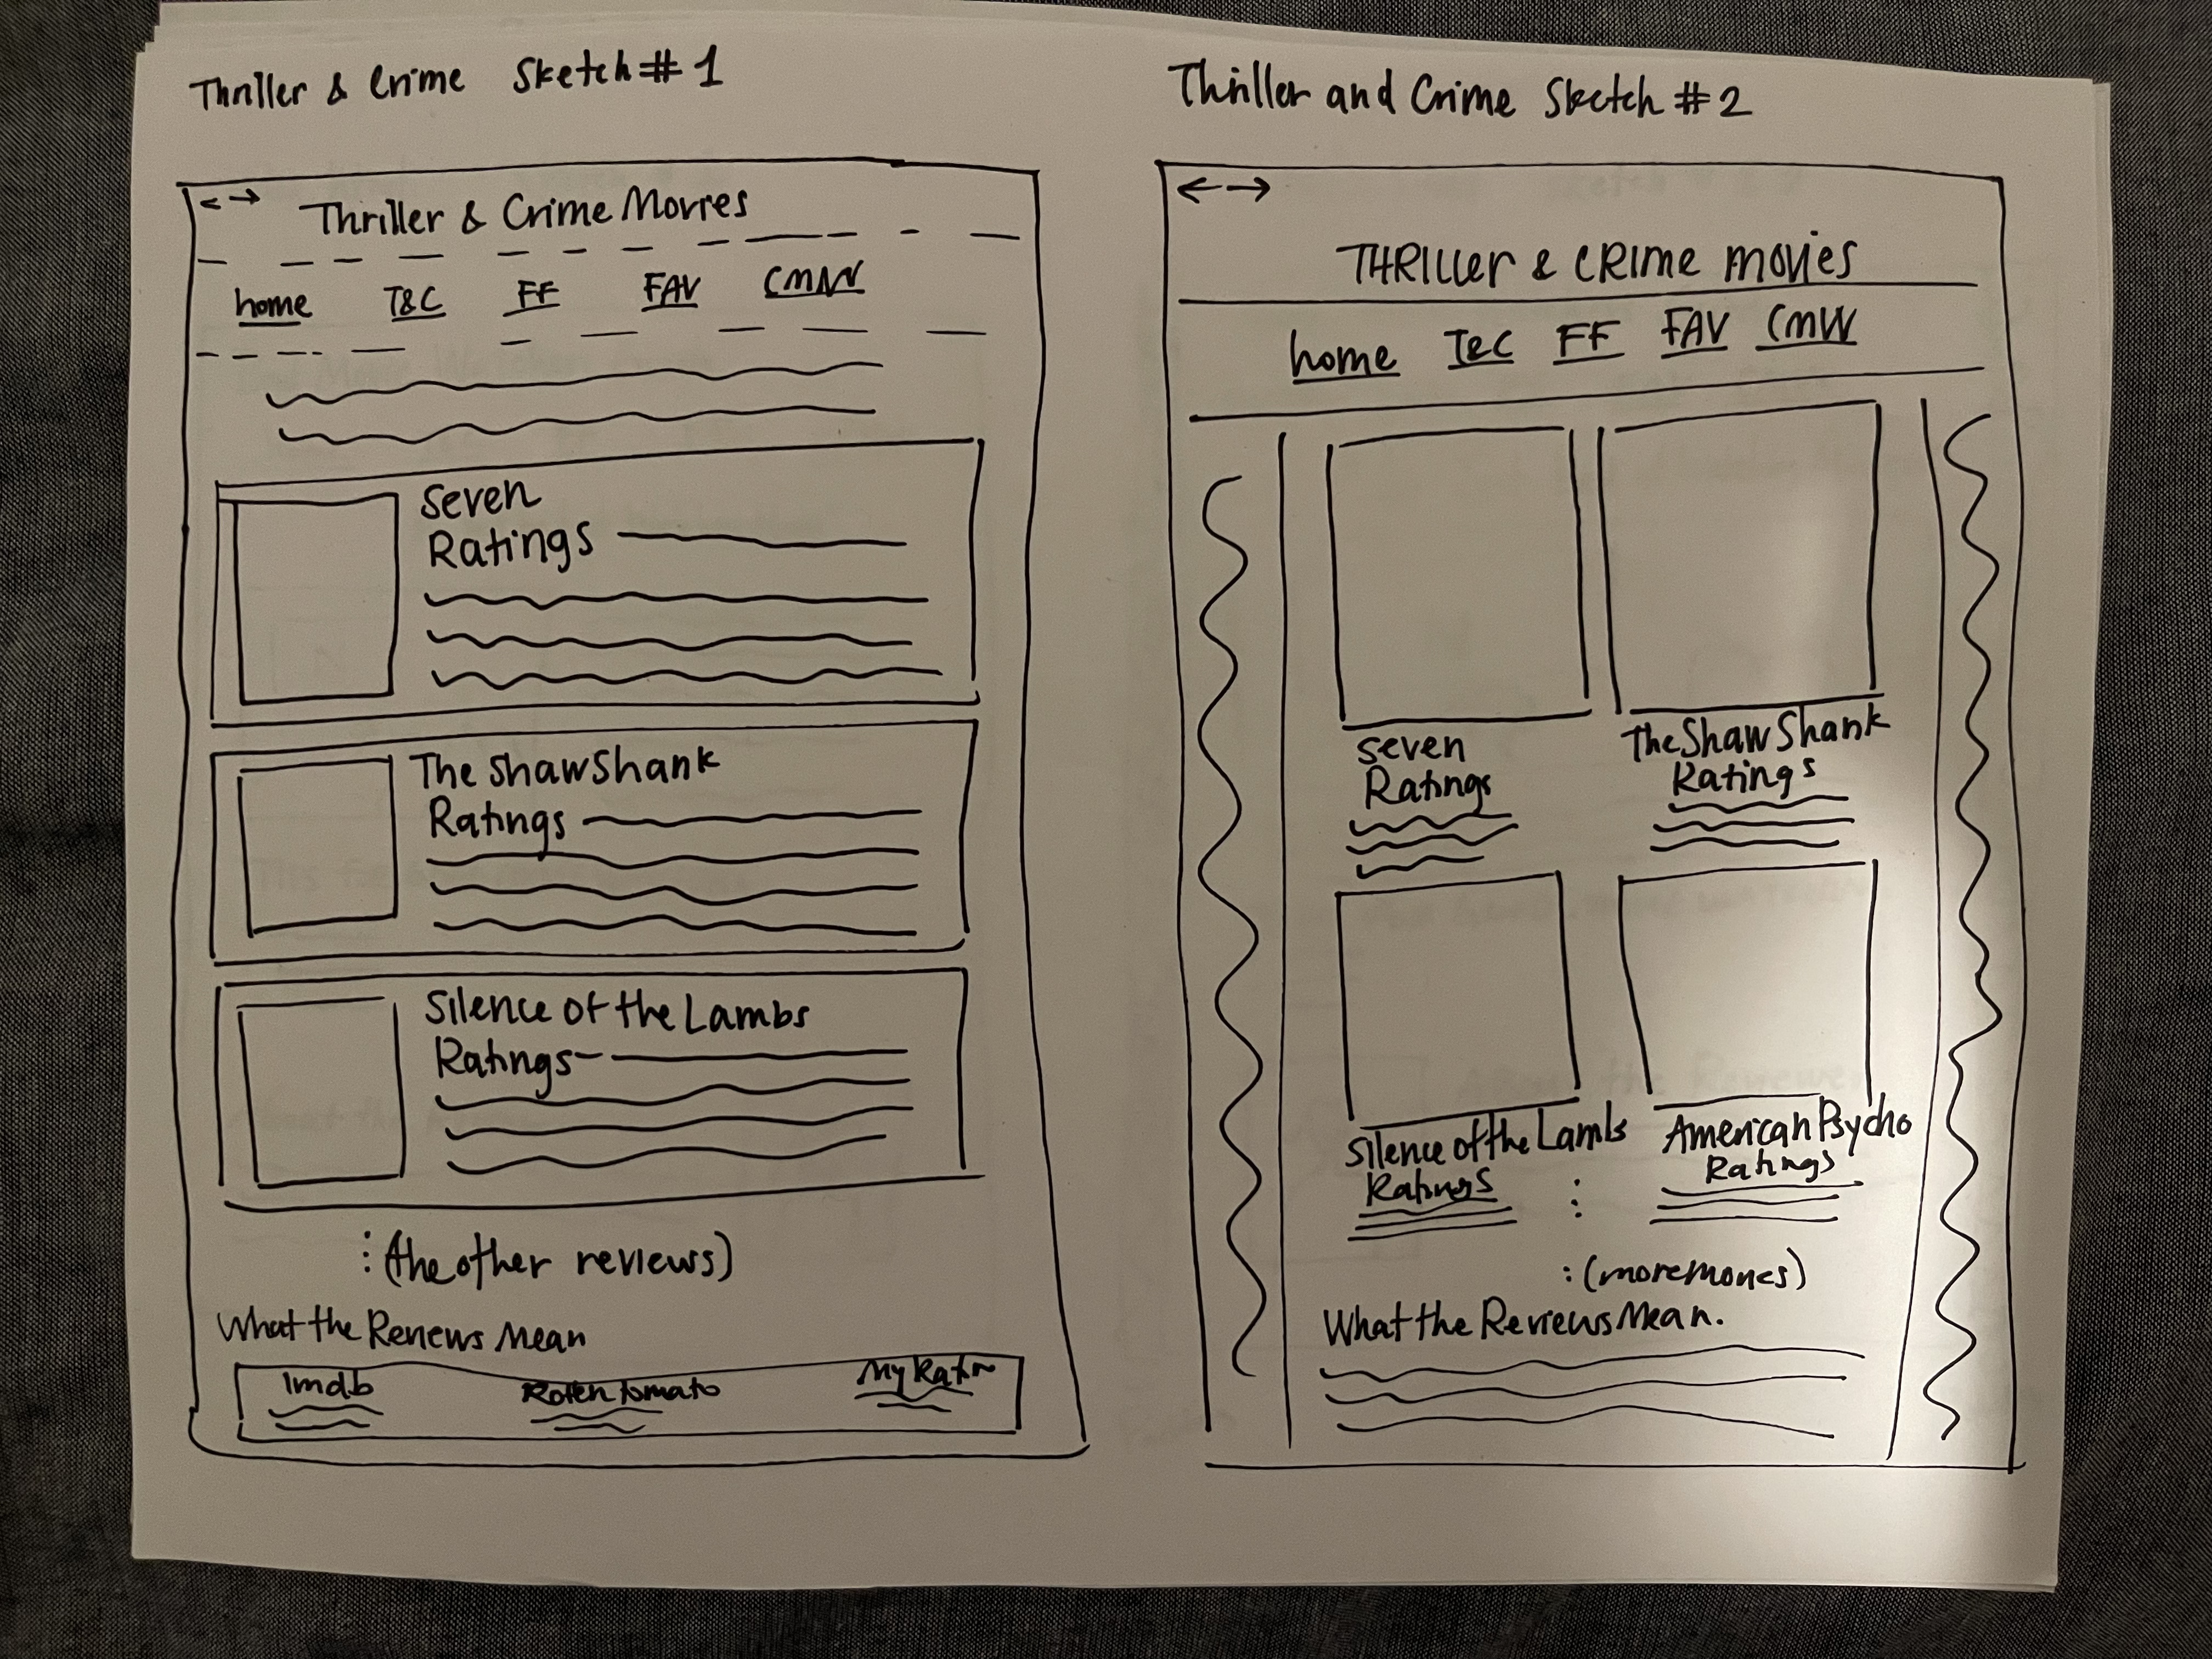 Thriller & Crime Sketch #1
Thriller & Crime Movies
home T&C FF FAV CMW
Seven
Ratings
The Shawshank
Ratings
Silence of the Lambs
Ratings
: (the other reviews)
What the Reviews Mean
Imdb Rotten tomato My Ratin
Thriller and Crime Sketch #2
THRILLER & CRIME MOVIES
home T&C FF FAV CMW
Seven
Ratings
The ShawShank
Ratings
Silence of the Lambs
Ratings
American Psycho
Ratings
: (more movies)
What the Reviews Mean.